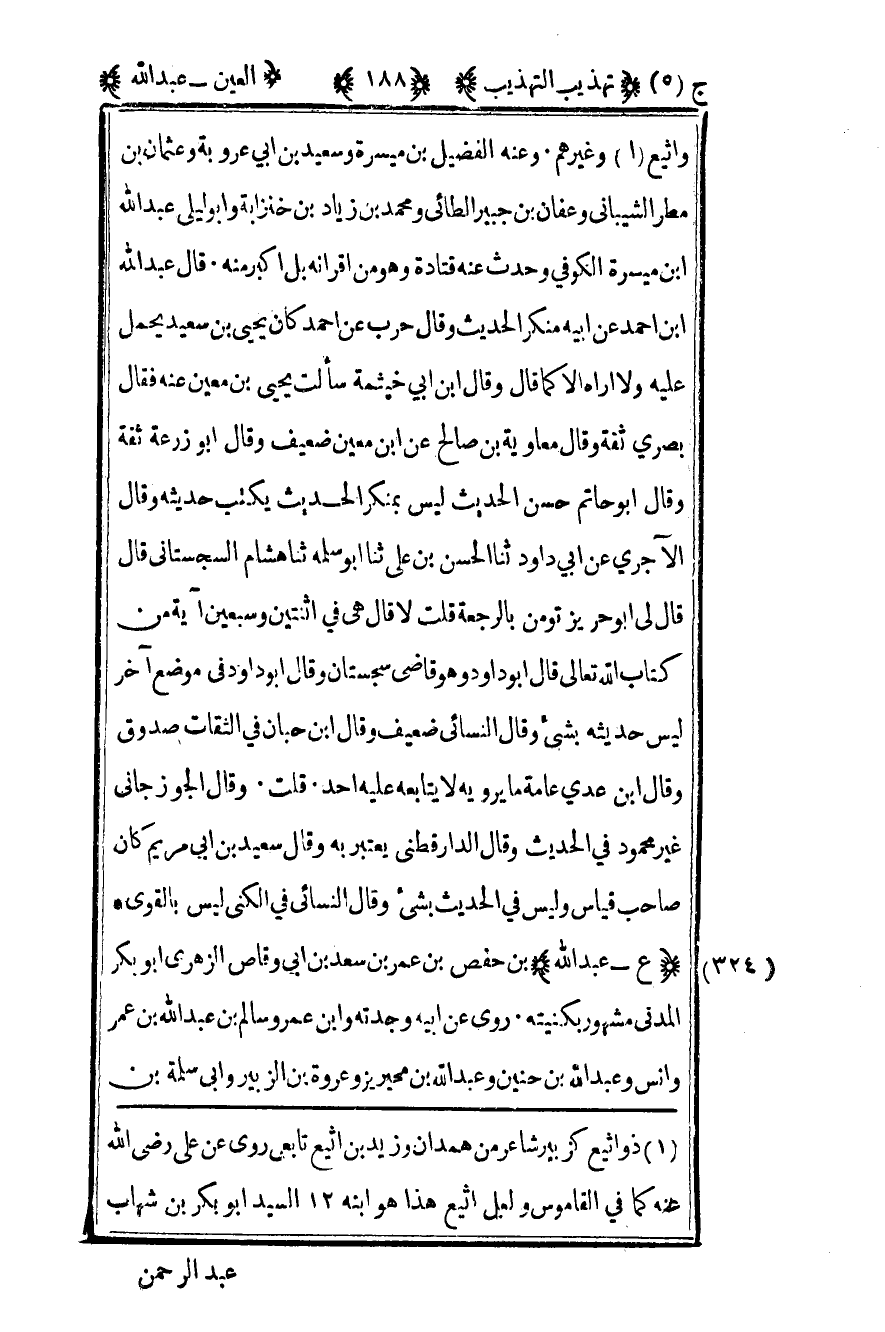 ج (٥) ﴿ تهذيب التهذيب ﴾ ﴿ ١٨٨ ﴾ ﴿ العين ـ عبدالله ﴾
واثيع (١) وغيرهم · وعنه الفضيل بن ميسرة وسعيد بن ابي عروبة وعثمان بن
مطر الشيباني وعفان بن جبير الطائى ومحمد بن زياد بن خنزابة وابوليلى عبدالله
ابن ميسرة الكوفي وحدث عنه قتادة وهو من اقرانه بل اكبر منه · قال عبدالله
ابن احمد عن ابيه منكر الحديث وقال حرب عن احمد كان يحيى بن سعيد يحمل
عليه ولا اراه الا كما قال وقال ابن ابي خيثمة سألت يحيى بن معين عنه فقال
بصري ثقة وقال معاوية بن صالح عن ابن معين ضعيف وقال ابو زرعة ثقة
وقال ابو حاتم حسن الحديث ليس بمنكر الحديث يكتب حديثه وقال
الآجري عن ابي داود ثنا الحسن بن على ثنا ابو سلمه ثنا هشام السجستانى قال
قال لى ابو حريز تومن بالرجعة قلت لا قال هى في اثنتين وسبعين آية من
كتاب الله تعالى قال ابو داود وهو قاضى سجستان وقال ابو داود فى موضع آخر
ليس حديثه بشئ وقال النسائى ضعيف وقال ابن حبان في الثقات صدوق
وقال ابن عدي عامة ما يرويه لا يتابعه عليه احد · قلت · وقال الجوزجانى
غير محمود في الحديث وقال الدارقطنى يعتبر به وقال سعيد بن ابى مريم كان
صاحب قياس وليس في الحديث بشئ وقال النسائى في الكنى ليس بالقوى •
(٣٢٤) ﴿ ع ـ عبدالله ﴾ بن حفص بن عمر بن سعد بن ابي وقاص الزهرى ابو بكر
المدنى مشهور بكنيته · روى عن ابيه وجدته وابن عمر وسالم بن عبدالله بن عمر
وانس وعبدالله بن حنين وعبدالله بن محيريز وعروة بن الزبير وابى سلمة بن
(١) ذو اثيع كزبير شاعر من همدان وزيد بن اثيع تابعى روى عن على رضى الله
عنه كما في القاموس ولعل اثيع هذا هو ابنه ١٢ السيد ابو بكر بن شهاب
عبد الرحمن